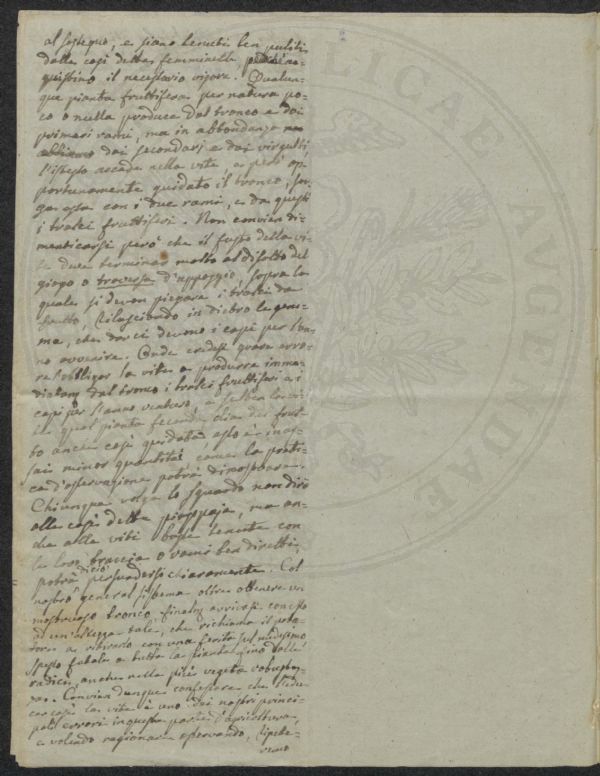 al sostegno, e siano tenuti ben puliti
dalle così dette femminelle, perché ac-
quistino il necessario vigore. Qualun-
que pianta fruttifera per natura po-
co o nulla produce dal tronco e dai
primari rami, ma in abbondanza
dai secondarj e dai virgulti;
l'istesso accade nella vite, e però op-
portunamente guidato il tronco,
esso con i due rami, e da questi
i tralci fruttiferi. Non convien di-
menticarsi però che il fusto della vi-
te deve terminar molto al disotto del
giogo o traversa d'appoggio, sopra la
quale si devon piegare i tralci da
frutto, rilasciando indietro le gem-
me, che darci devono i capi per l'an-
no avvenire. Onde credesi grave erro-
re l'obbligar la vite a produrre imme-
diatam dal tronco i tralci fruttiferi e i
capi per l'anno venturo, e sebben la vi-
te qual pianta feconda dia del frut-
to anche così guidata, esso è in as-
sai minor quantità come la prati-
ca d'osservazione potrà dimostrare.
Chiunque volga lo sguardo non dirò
alle così dette pioppaje, ma an-
che alle viti basse tenute con
le loro braccia o rami ben diretti,
potrà di ciò persuadersi chiaramente. Col
nostro general sistema oltre ottenere un
mostruoso tronco finalm avviene con esso
ad un'altezza tale, che richiama il pota-
tore a ritirarlo con una ferita sul medesimo
spesso fatale a tutta la pianta fino dalle
radici, anche nella più vegeta robustez-
za. Convien dunque confessare che l'edu-
car così la vite è uno dei nostri princi-
pali errori in questa parte d'agricoltura,
e volendo ragionare operando,